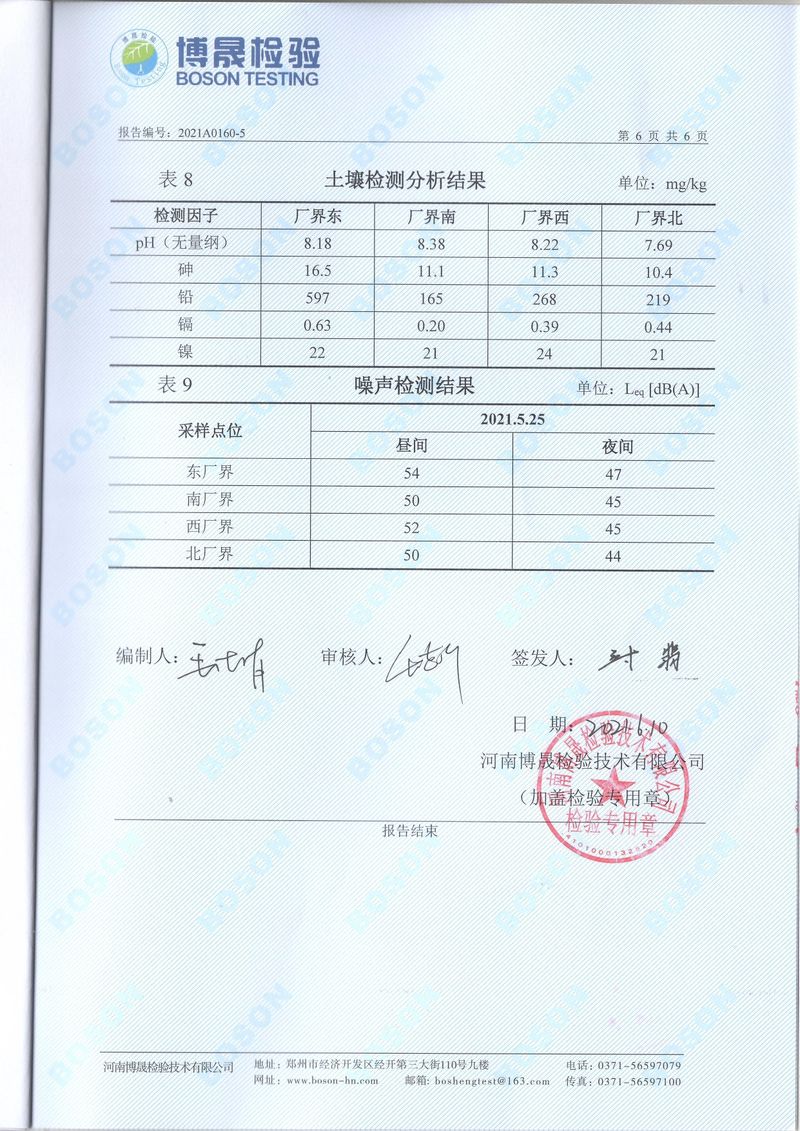 博晟检验
BOSON TESTING
报告编号：2021A0160-5 第 6 页 共 6 页
表 8 土壤检测分析结果 单位：mg/kg
检测因子 厂界东 厂界南 厂界西 厂界北
pH（无量纲） 8.18 8.38 8.22 7.69
砷 16.5 11.1 11.3 10.4
铅 597 165 268 219
镉 0.63 0.20 0.39 0.44
镍 22 21 24 21
表 9 噪声检测结果 单位：Leq [dB(A)]
采样点位 2021.5.25
昼间 夜间
东厂界 54 47
南厂界 50 45
西厂界 52 45
北厂界 50 44
编制人： 审核人： 签发人：
日 期：2021.6.10
河南博晟检验技术有限公司
（加盖检验专用章）
河南博晟检验技术有限公司
检验专用章
4101000132520
报告结束
河南博晟检验技术有限公司 地址：郑州市经济开发区经开第三大街110号九楼 电话：0371-56597079
网址：www.boson-hn.com 邮箱: boshengtest@163.com 传真：0371-56597100